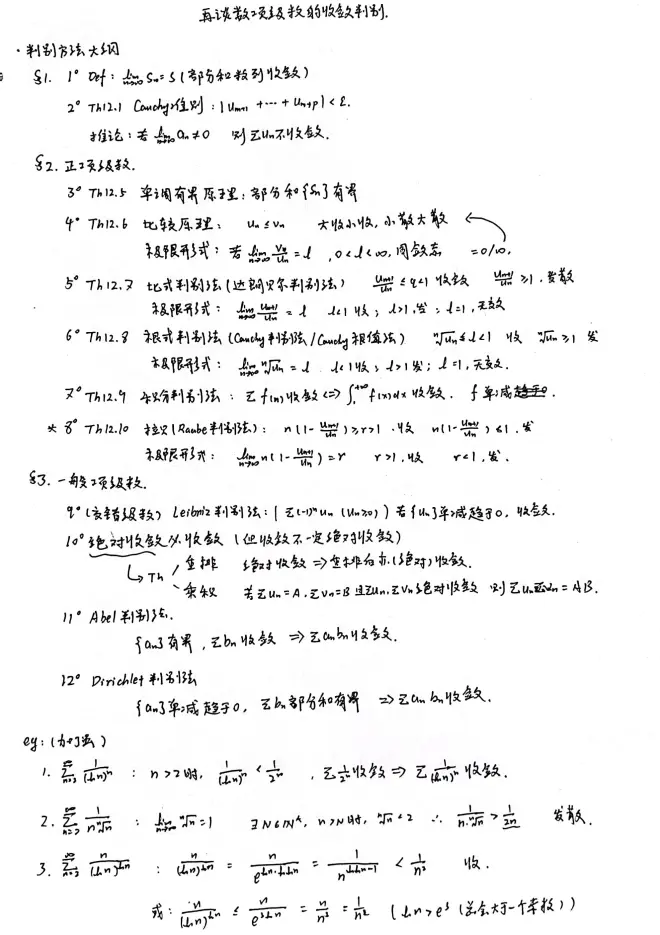 再谈数项级数的收敛判别.
·判别方法大纲
§1. 1° Def: lim_{n→∞} Sn = S (部分和数列收敛)
2° Th12.1 Cauchy准则: |u_{m+1} + ··· + u_{m+p}| < ε.
推论: 若 lim_{n→∞} an ≠ 0 则 Σun 不收敛.
§2. 正项级数.
3° Th12.5 单调有界原理: 部分和{Sn}有界
4° Th12.6 比较原理: un ≤ vn 大收小收, 小散大散
极限形式: 若 lim_{n→∞} vn/un = l , 0<l<∞, 同敛态 =0/∞,
5° Th12.7 比式判别法(达朗贝尔判别法) u_{n+1}/un ≤ q<1 收敛 u_{n+1}/un ≥1. 发散
极限形式: lim_{n→∞} u_{n+1}/un = l l<1收; l>1,发; l=1,无效
6° Th12.8 根式判别法(Cauchy判别法/Cauchy根值法) ⁿ√un ≤ l<1 收 ⁿ√un ≥1 发
极限形式: lim_{n→∞} ⁿ√un = l . l<1收; l>1发; l=1,无效.
7° Th12.9 积分判别法: Σf(n)收敛 <=> ∫₁^{+∞} f(x)dx 收敛. f 单减
* 8° Th12.10 拉贝(Raabe判别法): n(1- u_{n+1}/un) ≥r>1 .收 n(1- u_{n+1}/un) ≤1 .发
极限形式: lim_{n→∞} n(1- u_{n+1}/un) = r r>1,收 r<1,发.
§3. 一般项级数.
9° (交错级数) Leibniz判别法: [Σ(-1)ⁿun (un≥0)) 若{un}单减趋于0, 收敛.
10° 绝对收敛必收敛 (但收敛不一定绝对收敛)
Th 重排 绝对收敛 => 重排后亦(绝对)收敛.
乘积 若Σun = A, Σvn = B 且Σun, Σvn绝对收敛 则 = AB.
11° Abel判别法.
{an}有界, Σbn收敛 => Σanbn收敛.
12° Dirichlet判别法
{an}单减趋于0, Σbn部分和有界 => Σan bn收敛.
eg:
1. Σ_{n=3}^∞ 1/(ln n)ⁿ : n>2时, 1/(ln n)ⁿ < 1/2ⁿ , Σ1/2ⁿ收敛 => Σ 1/(ln n)ⁿ 收敛.
2. Σ_{n=2}^∞ 1/(n ⁿ√n) : lim_{n→∞} ⁿ√n = 1 ∃N∈N*, n>N时, ⁿ√n < 2 ∴ 1/(n·ⁿ√n) > 1/2n 发散.
3. Σ_{n=2}^∞ n/(ln n)^{ln n} : n/(ln n)^{ln n} = n/e^{ln n·lnln n} = 1/n^{lnln n-1} < 1/n² 收.
或: n/(ln n)^{ln n} ≤ n/e^{3ln n} = n/n³ = 1/n² (ln n > e³ (总会大于一个常数))